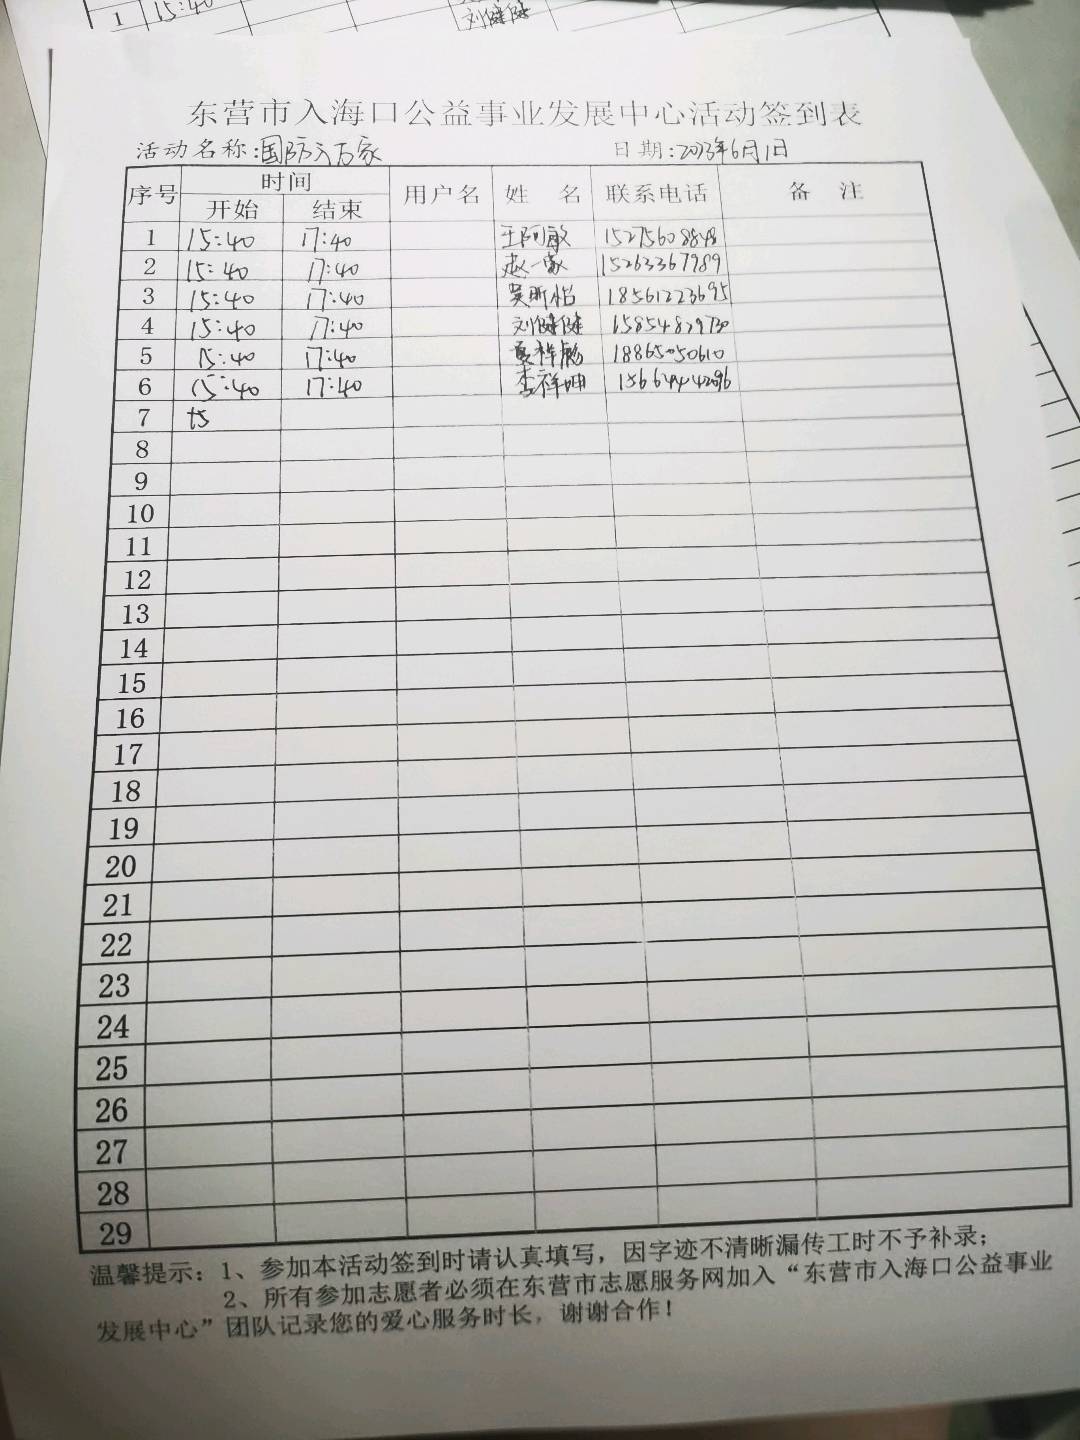 1 15:40 刘健健
东营市入海口公益事业发展中心活动签到表
活动名称:国防入万家 日期:2023年6月1日
序号 时间 用户名 姓 名 联系电话 备 注
开始 结束
1 15:40 17:40 王阿敏 15275608848
2 15:40 17:40 赵一家 15263367989
3 15:40 17:40 吴昕怡 18561223695
4 15:40 17:40 刘健健 15854829730
5 15:40 17:40 夏祥彪 18865050610
6 15:40 17:40 李祥坤
7
8
9
10
11
12
13
14
15
16
17
18
19
20
21
22
23
24
25
26
27
28
29
温馨提示：1、参加本活动签到时请认真填写，因字迹不清晰漏传工时不予补录；
2、所有参加志愿者必须在东营市志愿服务网加入“东营市入海口公益事业
发展中心”团队记录您的爱心服务时长，谢谢合作！